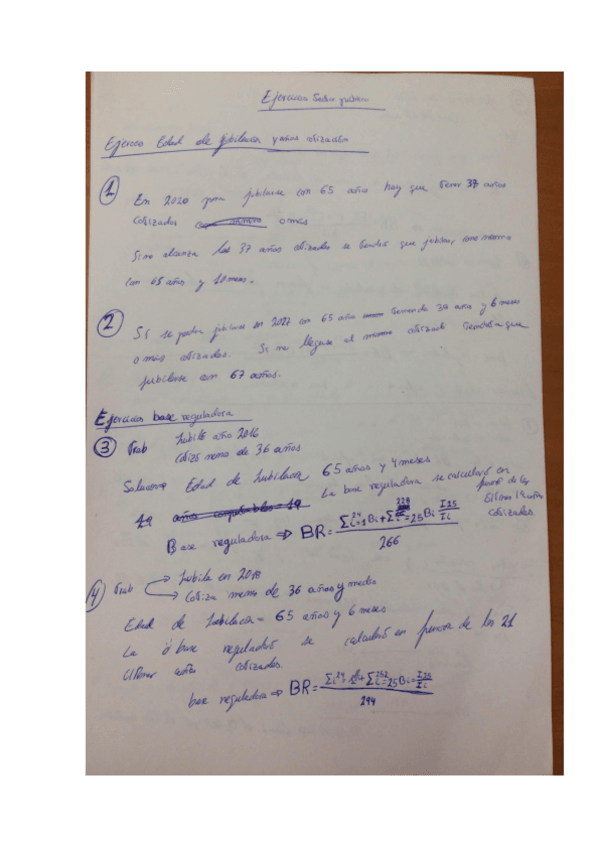 Ejercicios Sector publico
Ejercicio Edad de jubilacion y años cotización
1 En 2020 para jubilarse con 65 años hay que tener 37 años
cotizados o más
Si no alcanza los 37 años cotizados se tendrá que jubilar como mínimo
con 65 años y 10 meses.
2 Si se podra jubilarse en 2027 con 65 años teniendo 38 años y 6 meses
o más cotizados. Si no llegase al mínimo cotizado tendría que
jubilarse con 67 años.
Ejercicios base reguladora
3 Trab Jubiló año 2016
Cotizó menos de 36 años
Edad de Jubilacion 65 años y 4 meses
La base reguladora se calculará en
función de los
últimos 19 años
cotizados.
19 años computables = 19
Base reguladora ⇒ BR = (Σ i=1 24 Bi + Σ i=25 228 Bi I25/Ii) / 266
4 Trab Jubila en 2018
Cotiza menos de 36 años y medio
Edad de Jubilacion = 65 años y 6 meses
La base reguladora se calculará en funcion de los 21
ultimos años cotizados.
base reguladora ⇒ BR = (Σ 24 Bi + Σ 252 =25 Bi = I25/Ii) / 294